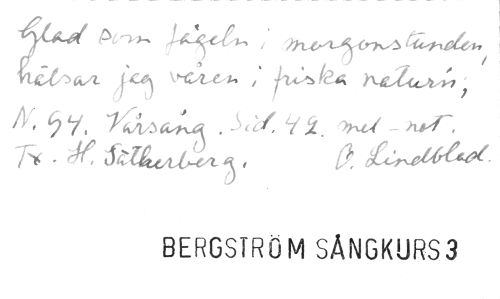 Glad som fågeln i morgonstunden,
hälsar jag våren i friska natur'n,
N. 94. Vårsång. Sid. 42. mel-not.
Tx. H. Sätherberg. O. Lindblad.
BERGSTRÖM SÅNGKURS 3